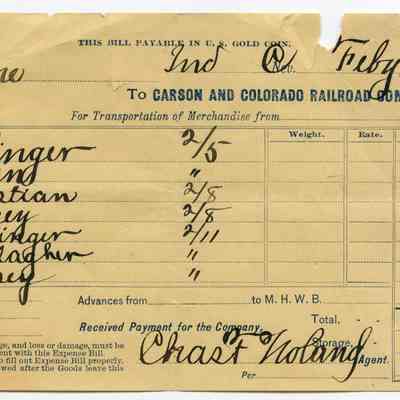 THIS BILL PAYABLE IN U. S. GOLD COIN.
Ind No. Feby
To CARSON AND COLORADO RAILROAD COM
For Transportation of Merchandise from
Weight. Rate.
inger 2/5
"
stian 2/8
ey 2/8
inger 2/11
lagher "
ney "
Advances from to M. H. W. B.
Total,
Received Payment for the Company, Storage,
Chas F Noland Agent.
Per
ge, and loss or damage, must be
ent with this Expense Bill.
o fill out Expense Bill properly.
wed after the Goods leave this